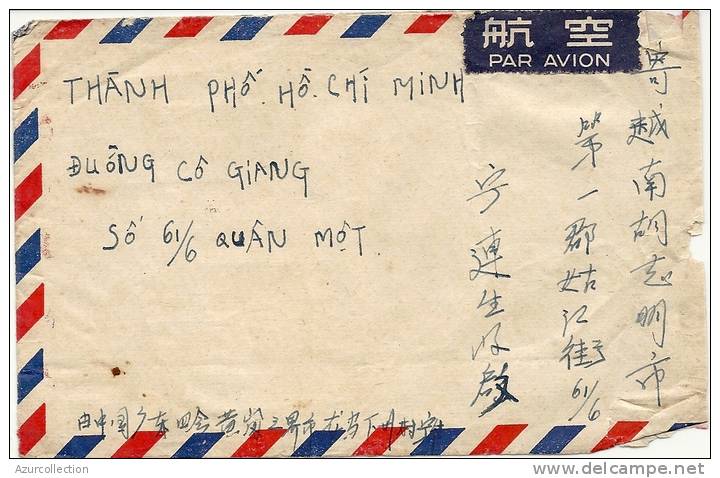 航空
PAR AVION
THÀNH PHỐ HỒ CHÍ MINH
ĐUỒNG CÔ GIANG
SỐ 61/6 QUÂN MỘT.
寄越南胡志明市
第一郡姑江街61/6
宁連生收啟
由中国广东四会黄岗三界市
Azurcollection
delcampe.net